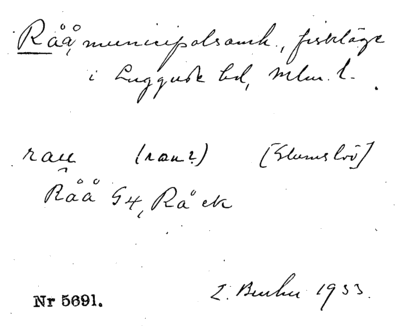 Råå, municipalsamh., fiskläge
i Luggude hd, Mlm. l.
rau (rau?) [Glumslöv]
Råå G4, Råck
Nr 5691.
1933.